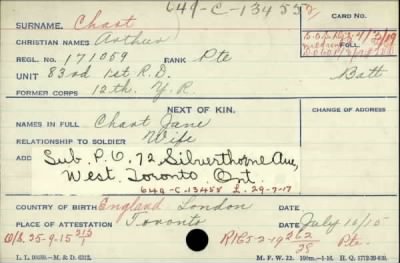 649-C-13455
SURNAME. Chast
CARD NO.
CHRISTIAN NAMES Arthur
FOLL.
REGL. NO. 171059 RANK Pte
UNIT 83rd 1st R.D. Batt
FORMER CORPS 12th. Y.R.
NEXT OF KIN.
CHANGE OF ADDRESS
NAMES IN FULL Chast Jane
RELATIONSHIP TO SOLDIER Wife
ADD Sub. P.O. 72 Silverthorne Ave,
West Toronto Ont.
649-C-13455 L. 29-7-17
COUNTRY OF BIRTH England London DATE
PLACE OF ATTESTATION Toronto DATE July 10/15
O/S. 25-9-15 213 R165-2-19 262/38 Pte.
M. F. W. 22.